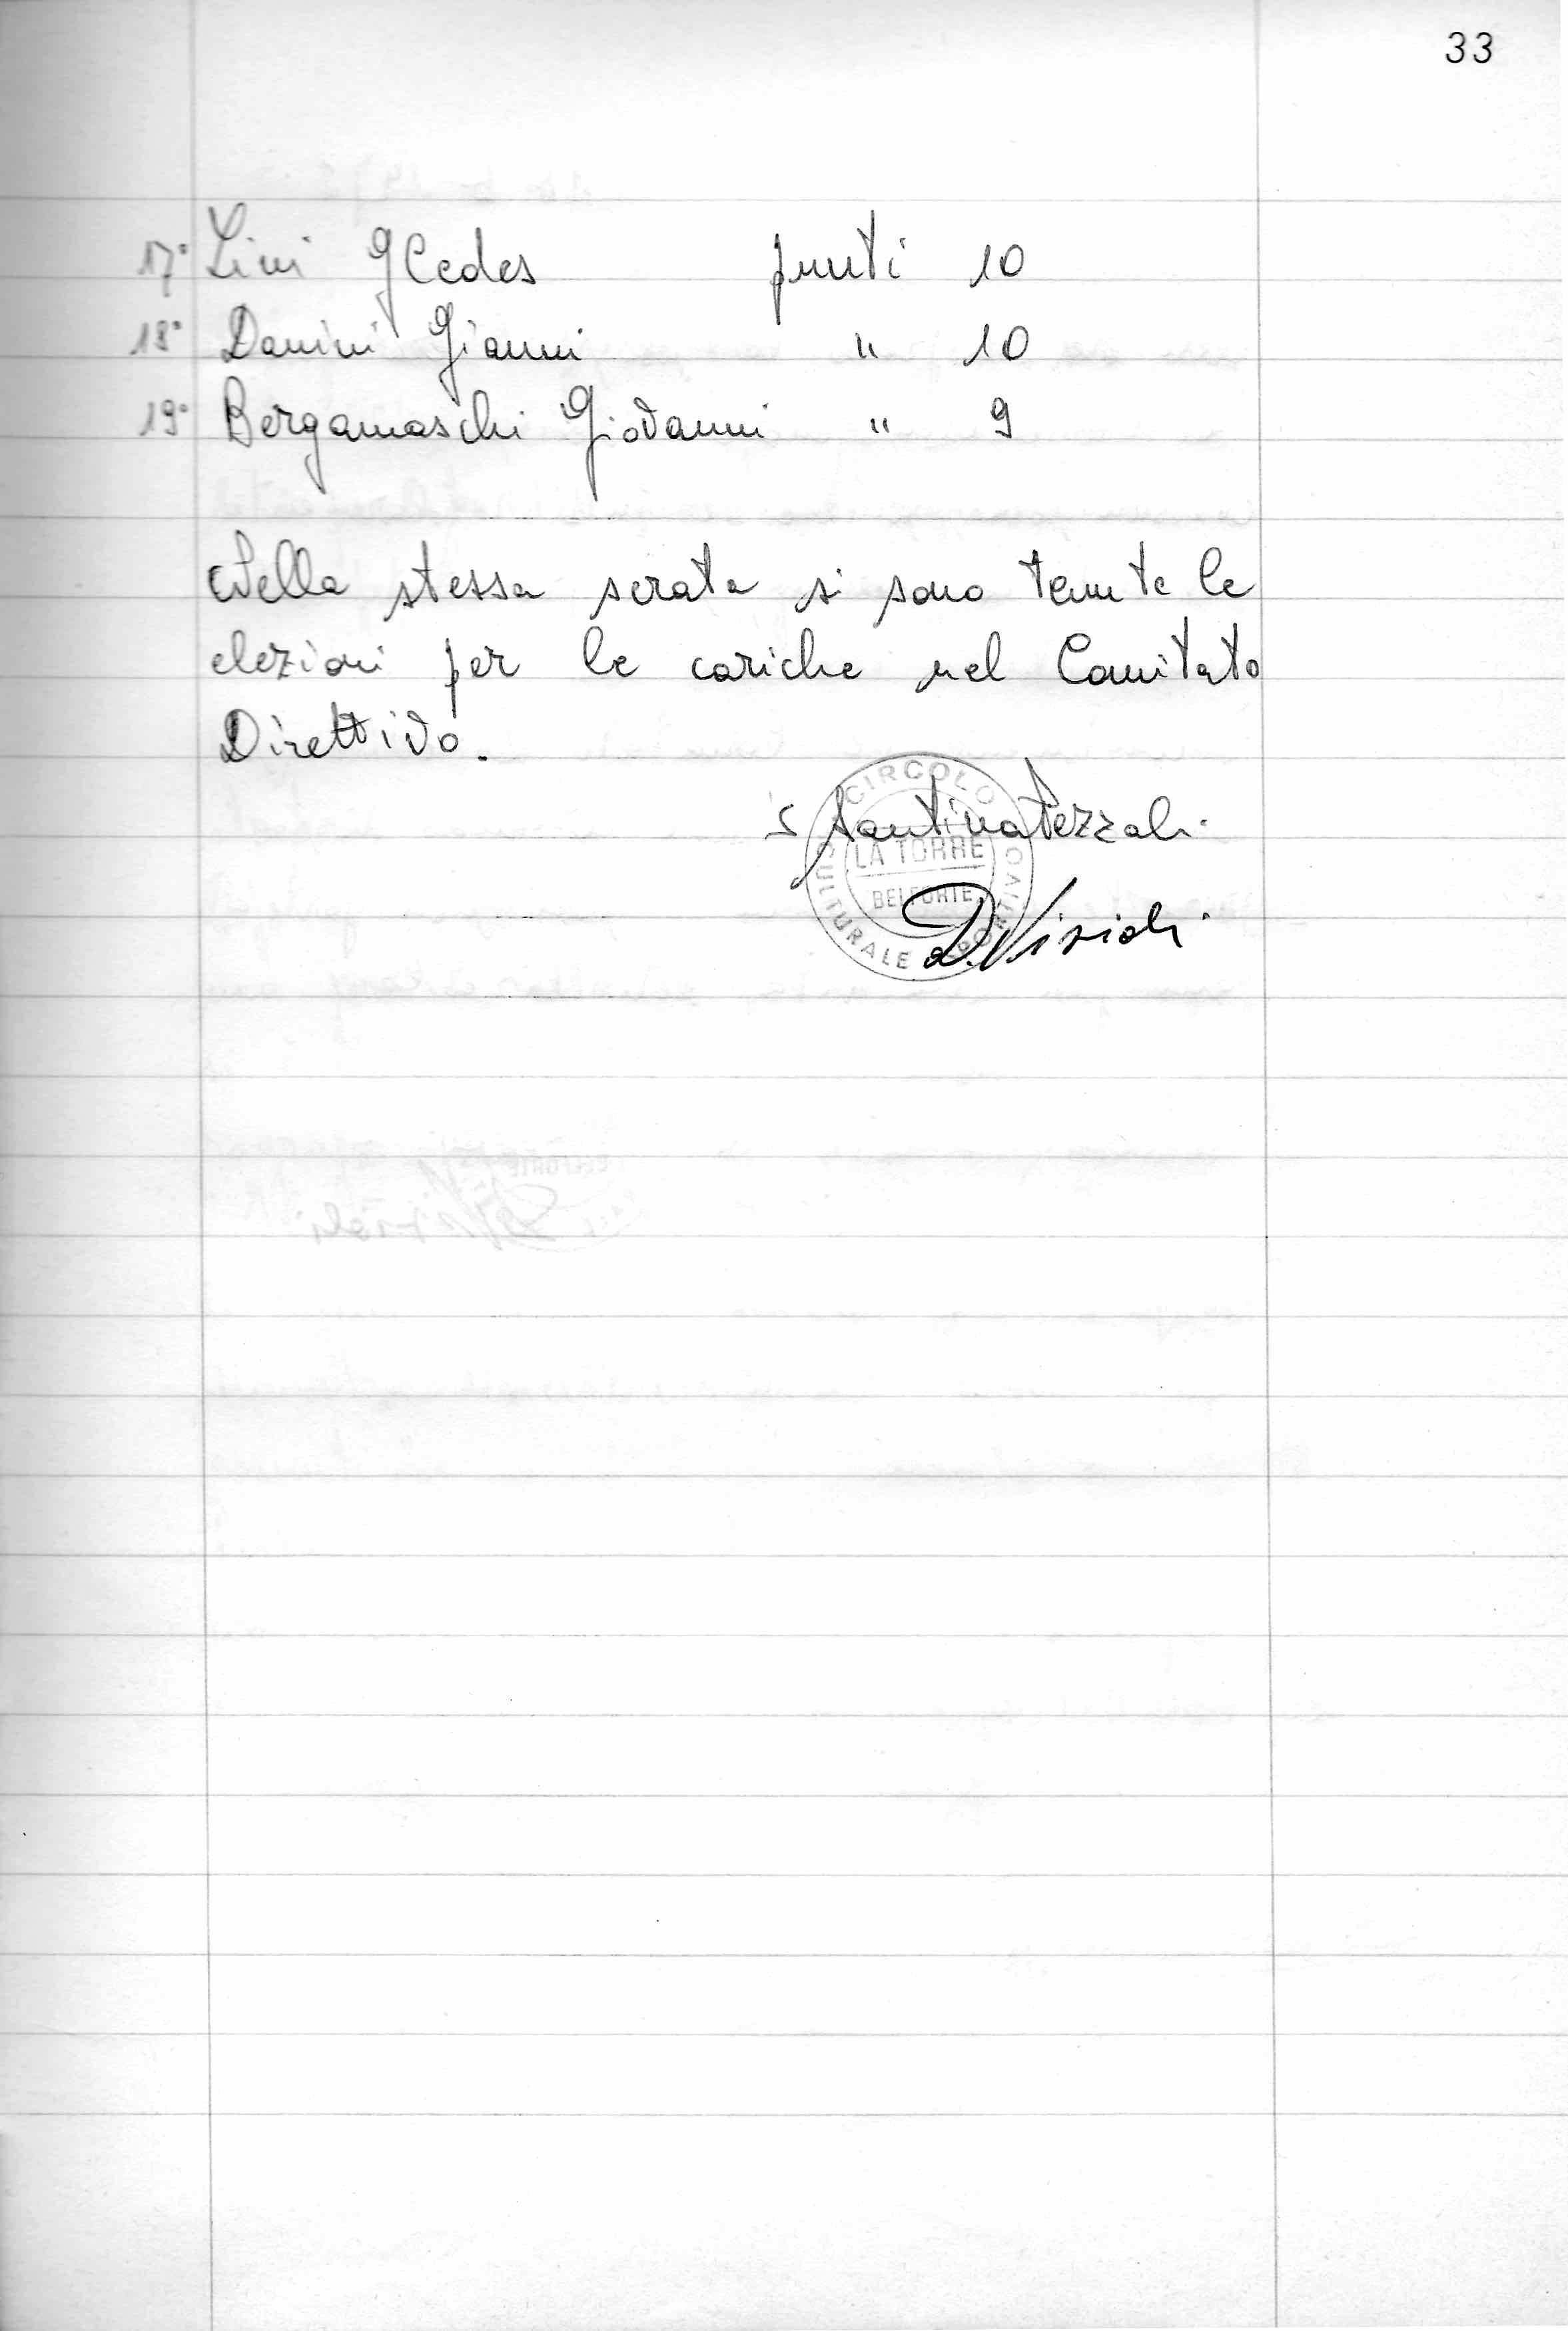 33
17° Lini Gledes punti 10
18° Danini Gianni " 10
19° Bergamaschi Giovanni " 9
Nella stessa serata si sono tenute le
elezioni per le cariche nel Comitato
Direttivo.
Santina Pezzali
CIRCOLO CULTURALE SPORTIVO
LA TORRE
BELFORTE
D. Visioli